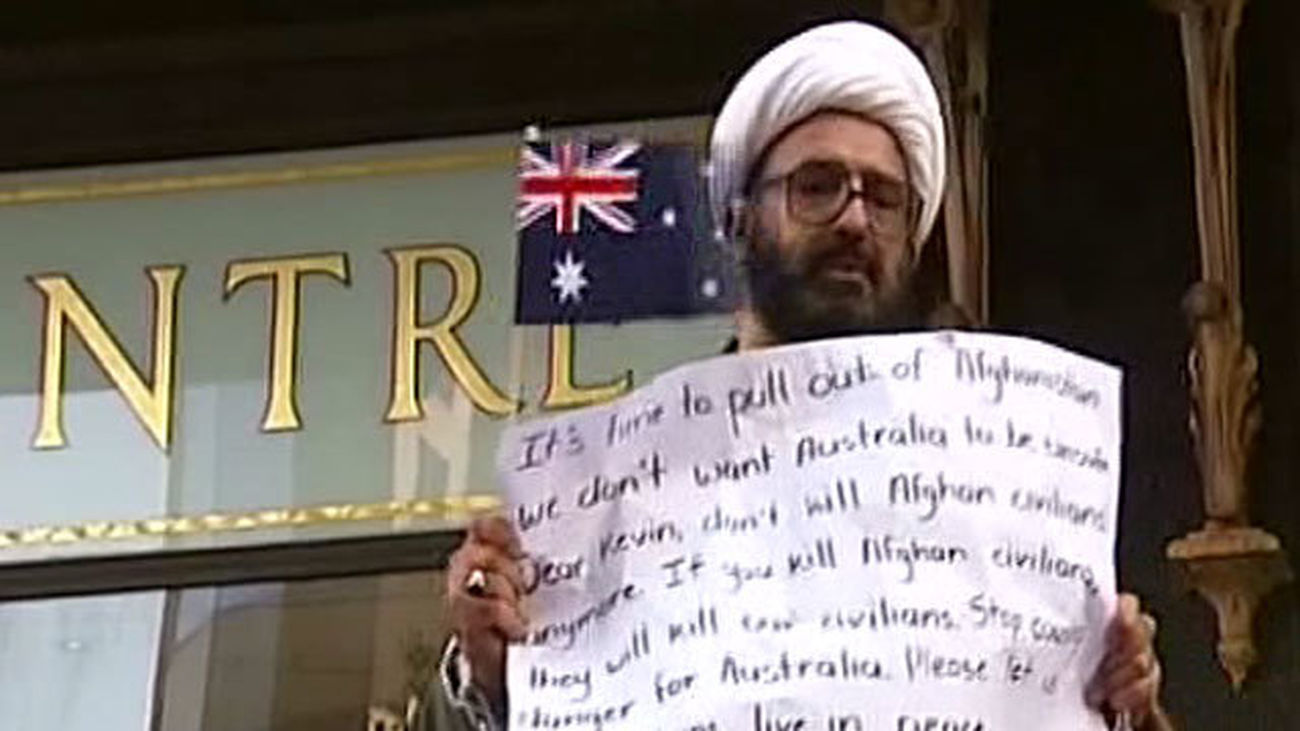 NTRE
It's time to pull out of Afghanistan
we don't want Australia to be
Dear Kevin, don't kill Afghan civilians
anymore. If you kill Afghan civilians,
they will kill civilians. Stop
danger for Australia. Please let
live in peace